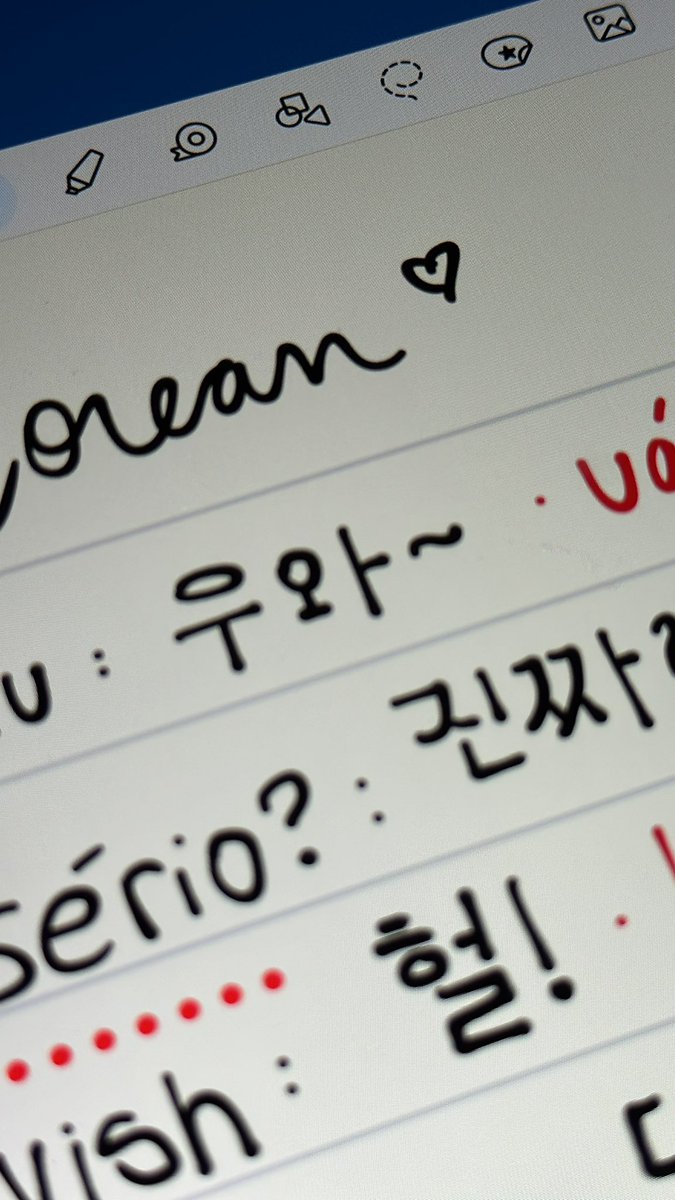 orean ♡
u : 우와~ · uá
sério? : 진짜?
vish : 헐! ·